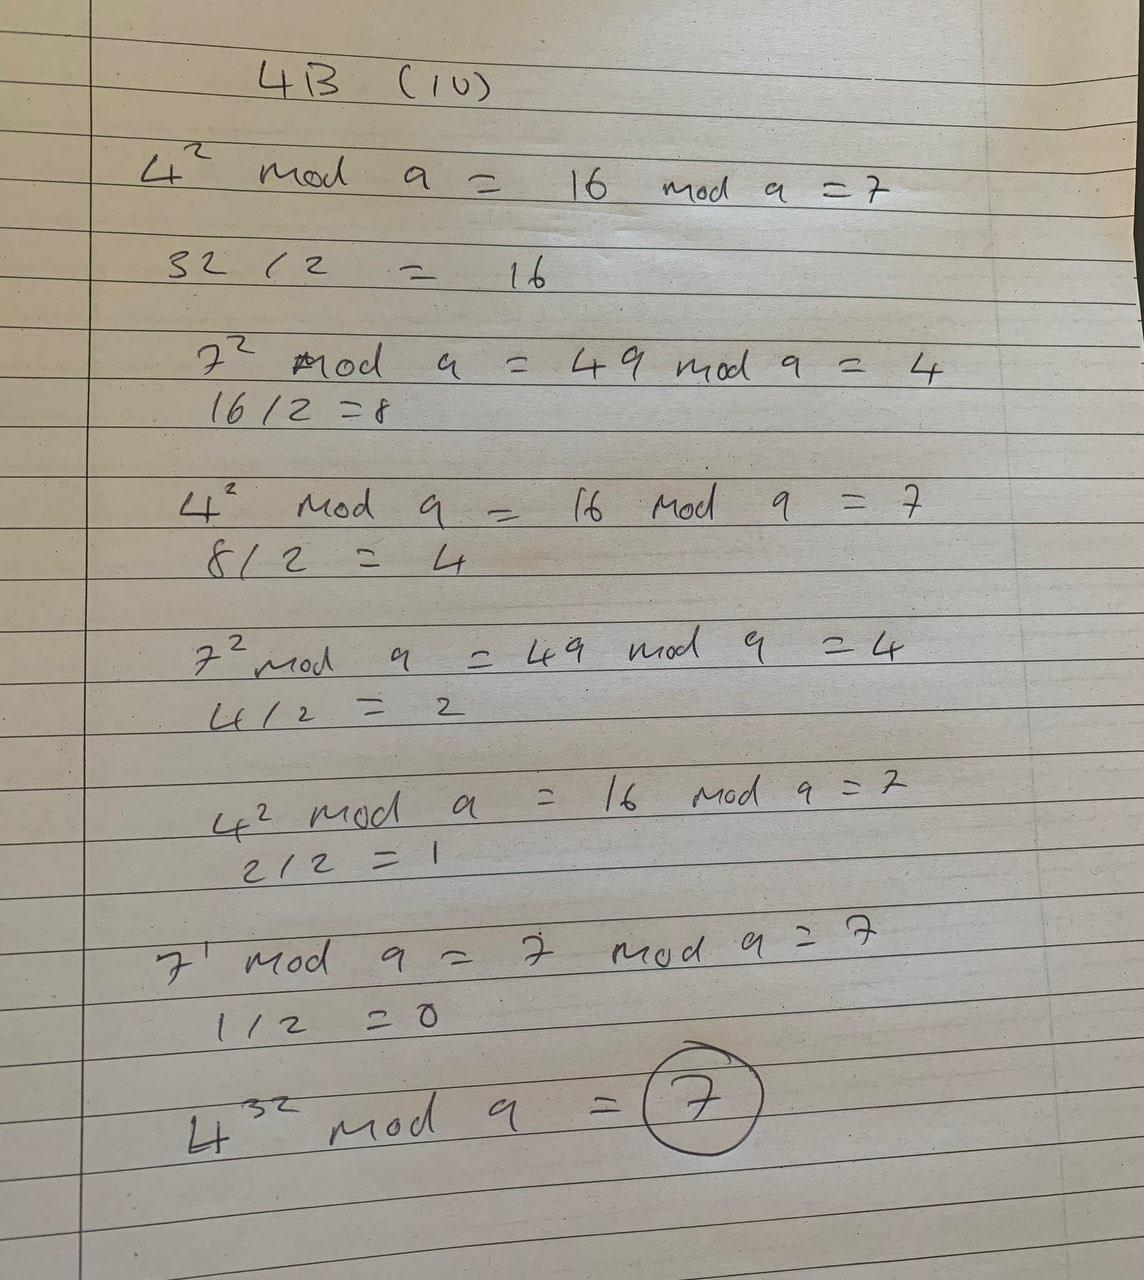 4B (IV)
4² mod 9 = 16 mod 9 = 7
32 / 2 = 16
7² mod 9 = 49 mod 9 = 4
16 / 2 = 8
4² mod 9 = 16 mod 9 = 7
8 / 2 = 4
7² mod 9 = 49 mod 9 = 4
4 / 2 = 2
4² mod 9 = 16 mod 9 = 7
2 / 2 = 1
7¹ mod 9 = 7 mod 9 = 7
1 / 2 = 0
4³² mod 9 = 7